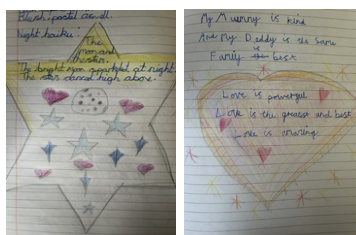 Night haiku:
The
moon and
the stars.
The bright moon at night.
The stars dance high above.
My Mummy is kind
And my Daddy is the same
Family is the best
Love is powerful
Love is the greatest and best
Love is amazing